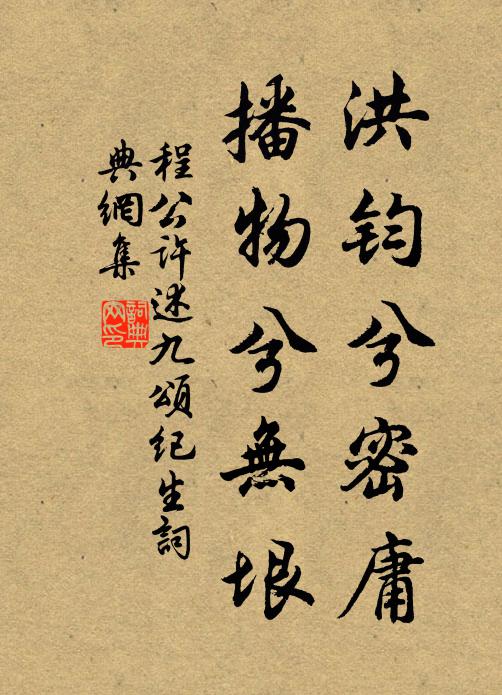 洪钧兮密庸
播物兮無垠
程公许述九頌纪生詞
典網集
詞典
网印